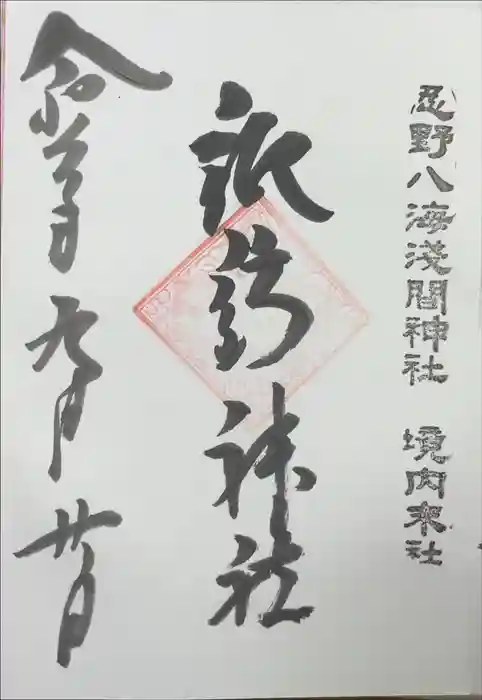 忍野八海淺間神社 境内末社
神社
令和 九月 廿日